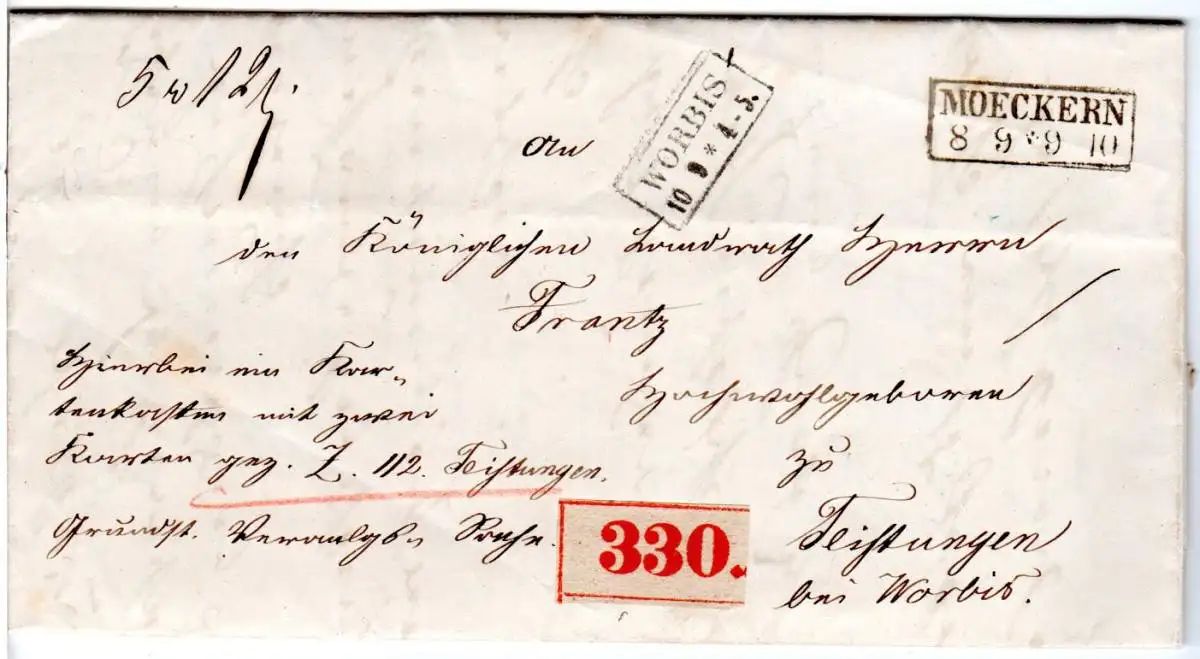 MOECKERN
8 9 * 9 10
WORBIS
10 9 * 4-5.
An
den Königlichen Landrath Herrn
Frantz
Hochwohlgeboren
zu
Teistungen
bei Worbis.
Hierbei ein Kar-
tenkasten mit zwei
Karten gez. Z. 112. Teistungen.
Grundst. Veranlgs- Sache.
330.